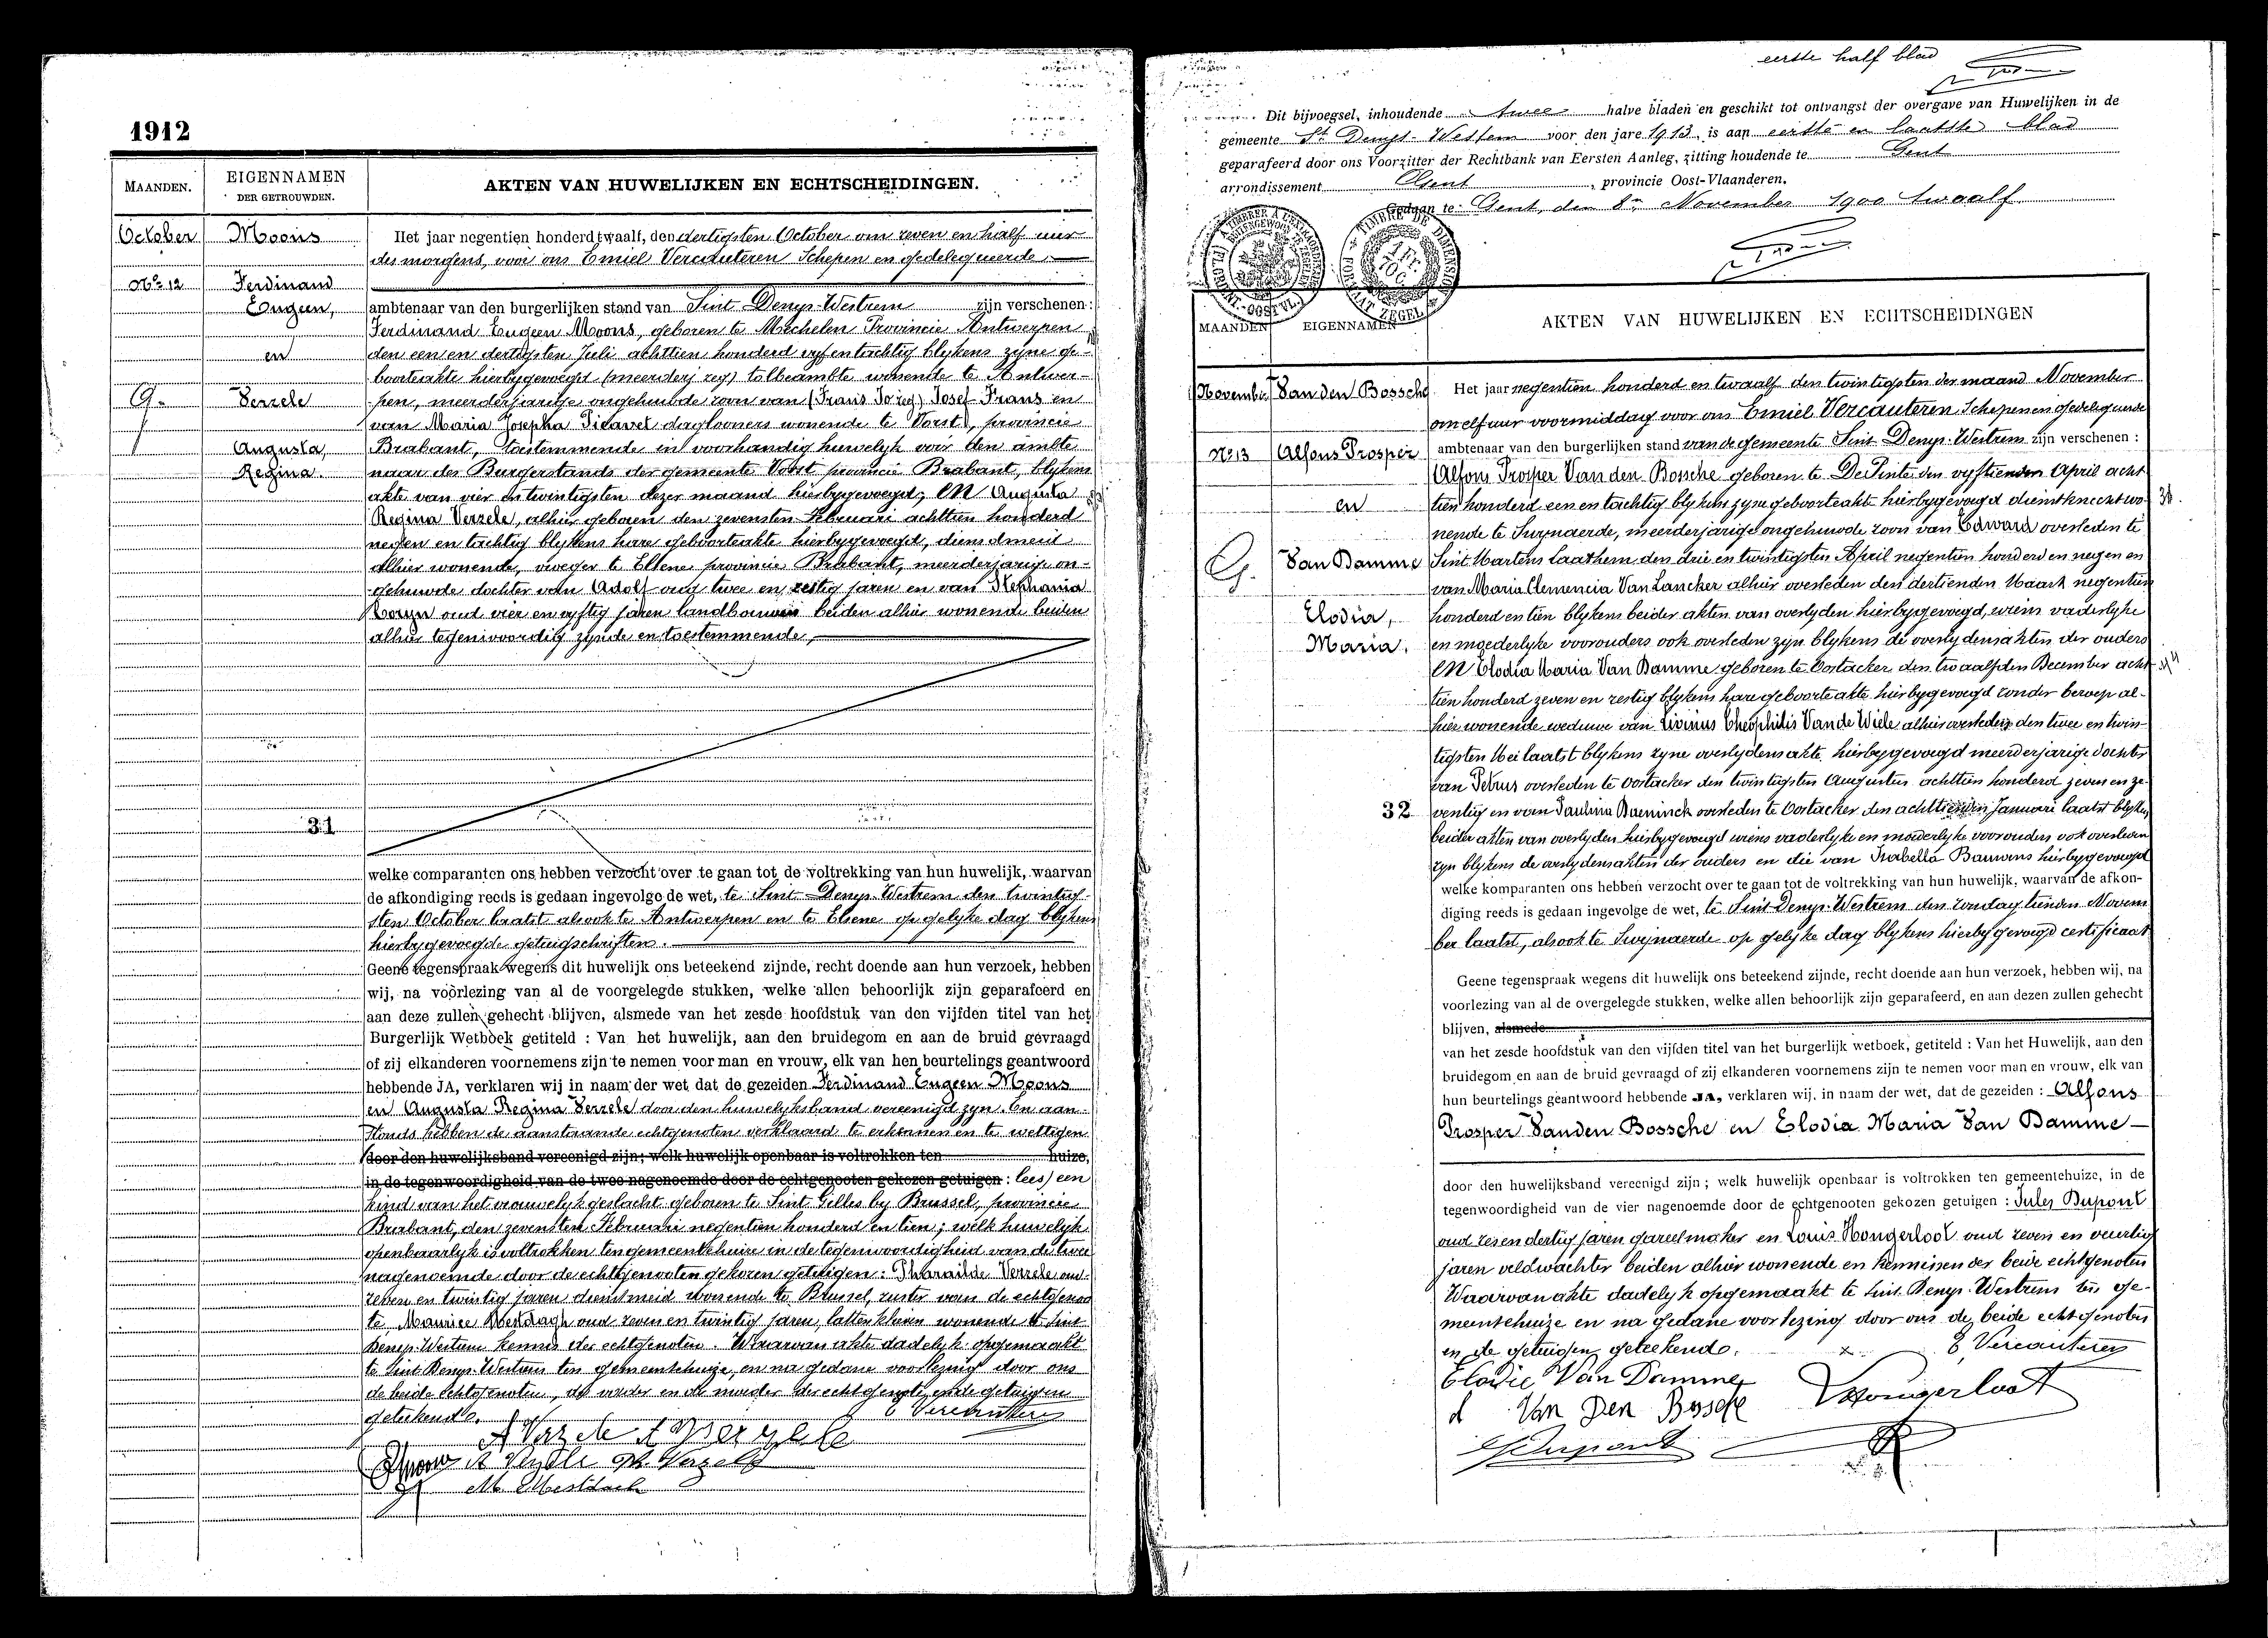 1912
MAANDEN.
EIGENNAMEN
DER GETROUWDEN.
AKTEN VAN HUWELIJKEN EN ECHTSCHEIDINGEN.
October
Moons
Het jaar negentien honderd twaalf, den dertigsten October om zeven en half uur
des morgens, voor ons Emiel Vercauteren Schepen en gedelegueerde
No 12
Ferdinand
Eugeen,
ambtenaar van den burgerlijken stand van Sint Denys-Westrem zijn verschenen:
Ferdinand Eugeen Moons, geboren te Mechelen Provincie Antwerpen
en
den een en dertigsten Juli achttien honderd vyf en tachtig blykens zyne ge-
boorteakte hierbygevoegd (meerderj zeg) tolbeambte wonende te Antwer-
G.
Verzele
pen, meerderjarige ongehuwde zoon van (Frans Jo zeg) Josef Frans en
van Maria Josepha Picavet daglooners wonende te Vorst, provincie
Augusta,
Brabant, toestemmende in voorhandig huwelyk voor den ambte
Regina.
naar des Burgerstands der gemeente Vorst provincie Brabant, blykens
akte van vier en twintigsten dezer maand hierbygevoegd; EN Augusta
Regina Verzele, alhier geboren den zevensten Februari achttien honderd
negen en tachtig blykens hare geboorteakte hierbygevoegd, dienstmeid
alhier wonende, vroeger te Elsene provincie Brabant, meerderjarige on-
gehuwde dochter van Adolf oud twee en zestig jaren en van Stephania
oud vier en vyftig jaren landbouwers beiden alhier wonende beiden
alhier tegenwoordig zynde en toestemmende,
31
welke comparanten ons hebben verzocht over te gaan tot de voltrekking van hun huwelijk, waarvan
de afkondiging reeds is gedaan ingevolge de wet, te Sint Denys-Westrem den twintig-
sten October laatst alsook te Antwerpen en te Elsene op gelyke dag blykens
hierbygevoegde getuigschriften.
Geene tegenspraak wegens dit huwelijk ons beteekend zijnde, recht doende aan hun verzoek, hebben
wij, na voorlezing van al de voorgelegde stukken, welke allen behoorlijk zijn geparafeerd en
aan deze zullen gehecht blijven, alsmede van het zesde hoofdstuk van den vijfden titel van het
Burgerlijk Wetboek getiteld : Van het huwelijk, aan den bruidegom en aan de bruid gevraagd
of zij elkanderen voornemens zijn te nemen voor man en vrouw, elk van hen beurtelings geantwoord
hebbende JA, verklaren wij in naam der wet dat de gezeiden Ferdinand Eugeen Moons
en Augusta Regina Verzele door den huwelyksband vereenigd zyn. En aan-
stonds hebben de aanstaande echtgenoten verklaard te erkennen en te wettigen
door den huwelijksband vereenigd zijn; welk huwelijk openbaar is voltrokken ten huize,
in de tegenwoordigheid van de twee nagenoemde door de echtgenooten gekozen getuigen : lees) een
kind van het vrouwelyk geslacht geboren te Sint Gilles by Brussel, provincie
Brabant, den zevensten Februari negentien honderd en tien; welk huwelyk
openbaarlyk is voltrokken ten gemeentehuize in de tegenwoordigheid van de twee
nagenoemde door de echtgenooten gekozen getuigen: Pharaïlde Verzele oud
zeven en twintig jaren dienstmeid wonende te Brussel, zuster van de echtgenoo
te Maurice Mestdagh oud zeven en twintig jaren, wonende te Sint
Denys-Westrem kennis der echtgenoten. Waarvan akte dadelyk opgemaakt
te Sint Denys-Westrem ten gemeentehuize, en na gedane voorlezing door ons
de beide echtgenoten, de vader en de moeder der echtgenote, en de getuigen
geteekend. E Vercauteren
A Verzele
Ph. Verzele
M. Mestdach
eerste half blad
Dit bijvoegsel, inhoudende twee halve bladen en geschikt tot ontvangst der overgave van Huwelijken in de
gemeente St Denys-Westrem voor den jare 1913 is aan eerste en laatste blad
geparafeerd door ons Voorzitter der Rechtbank van Eersten Aanleg, zitting houdende te Gent
arrondissement Gent, provincie Oost-Vlaanderen.
Gedaan te Gent, den 8n November 1900 twaalf
MAANDEN
EIGENNAMEN
AKTEN VAN HUWELIJKEN EN ECHTSCHEIDINGEN
November
Van den Bossche
Het jaar negentien honderd en twaalf den twintigsten der maand November
om elf uur voormiddag voor ons Emiel Vercauteren Schepen en gedelegueerde
No 13
Alfons Prosper
ambtenaar van den burgerlijken stand van de gemeente Sint Denys-Westrem zijn verschenen :
Alfons Prosper Van den Bossche geboren te De Pinte den vyftienden April acht
en
tien honderd een en tachtig blykens zyne geboorteakte hierbygevoegd dienstknecht wo-
nende te Swynaerde, meerderjarige ongehuwde zoon van Edward overleden te
G.
Van Damme
Sint Martens Laathem den drie en twintigsten April negentien honderd en negen en
van Maria Clemencia Van Lancker alhier overleden den dertienden Maart negentien
Elodia,
honderd en tien blykens beider akten van overlyden hierbygevoegd, wiens vaderlyke
Maria.
en moederlyke voorouders ook overleden zyn blykens de overlydensakten der ouders
EN Elodia Maria Van Damme geboren te Oostacker den twaalfden December acht
tien honderd zeven en zestig blykens hare geboorteakte hierbygevoegd zonder beroep al-
hier wonende weduwe van Livinus Theophilis Van de Wiele alhier overleden den twee en twin-
tigsten Mei laatst blykens zyne overlydensakte hierbygevoegd meerderjarige dochter
van Petrus overleden te Oostacker den twintigsten Augustus achttien honderd zeven en ze-
32
ventig en van Paulina overleden te Oostacker den achttienden Januari laatst blykens
beider akten van overlyden hierbygevoegd wiens vaderlyke en moederlyke voorouders ook overleden
zyn blykens de overlydensakten der ouders en die van Isabella Bauwens hierbygevoegd
welke komparanten ons hebben verzocht over te gaan tot de voltrekking van hun huwelijk, waarvan de afkon-
diging reeds is gedaan ingevolge de wet, te Sint Denys-Westrem den zondag tienden Novem
ber laatst, alsook te Swynaerde op gelyke dag blykens hierbygevoegd certificaat
Geene tegenspraak wegens dit huwelijk ons beteekend zijnde, recht doende aan hun verzoek, hebben wij, na
voorlezing van al de overgelegde stukken, welke allen behoorlijk zijn geparafeerd, en aan dezen zullen gehecht
blijven, alsmede
van het zesde hoofdstuk van den vijfden titel van het burgerlijk wetboek, getiteld : Van het Huwelijk, aan den
bruidegom en aan de bruid gevraagd of zij elkanderen voornemens zijn te nemen voor man en vrouw, elk van
hun beurtelings geantwoord hebbende JA, verklaren wij, in naam der wet, dat de gezeiden : Alfons
Prosper Vanden Bossche en Elodia Maria Van Damme
door den huwelijksband vereenigd zijn ; welk huwelijk openbaar is voltrokken ten gemeentehuize, in de
tegenwoordigheid van de vier nagenoemde door de echtgenooten gekozen getuigen : Jules Dupont
oud zes en dertig jaren gareelmaker en Louis Hongerloot oud zeven en veertig
jaren veldwachter beiden alhier wonende en kennissen der beide echtgenoten
Waarvan akte dadelyk opgemaakt te Sint Denys-Westrem ten ge-
meentehuize en na gedane voorlezing door ons de beide echtgenoten
en de getuigen geteekend. E Vercauteren
Elodie Van Damme
Van Den Bossche
Hongerloot
Dupont